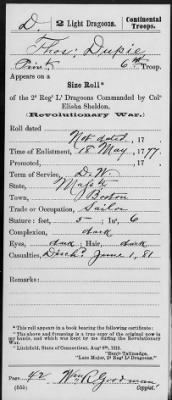 D. 2 Light Dragoons. Continental Troops.
Thos. Dupie
Priv't 6th Troop.
Appears on a
Size Roll*
of the 2d Reg't Lt Dragoons Commanded by Colo
Elisha Sheldon.
(Revolutionary War.)
Roll dated
Not dated, 17 .
Time of Enlistment, 18 May, 1777.
Promoted, , 17 .
Term of Service, D. W.
State, Mass
Town, Boston
Trade or Occupation, Sailor
Stature: feet, 5 : In., 6
Complexion, dark
Eyes, dark; Hair, dark
Casualties, Disch'd June 1, 81
Remarks:
*This roll appears in a book bearing the following certificate:
The above and foregoing is a true copy of the original now in my hands, and which was kept by me during the Revolutionary War.
"Litchfield, State of Connecticut, Aug
"Benj'n Tallmadge,
"Late Major, 2d Reg't Lt Dragoons."
Page, 42 Wm R. Goodman
(555) Copyist.